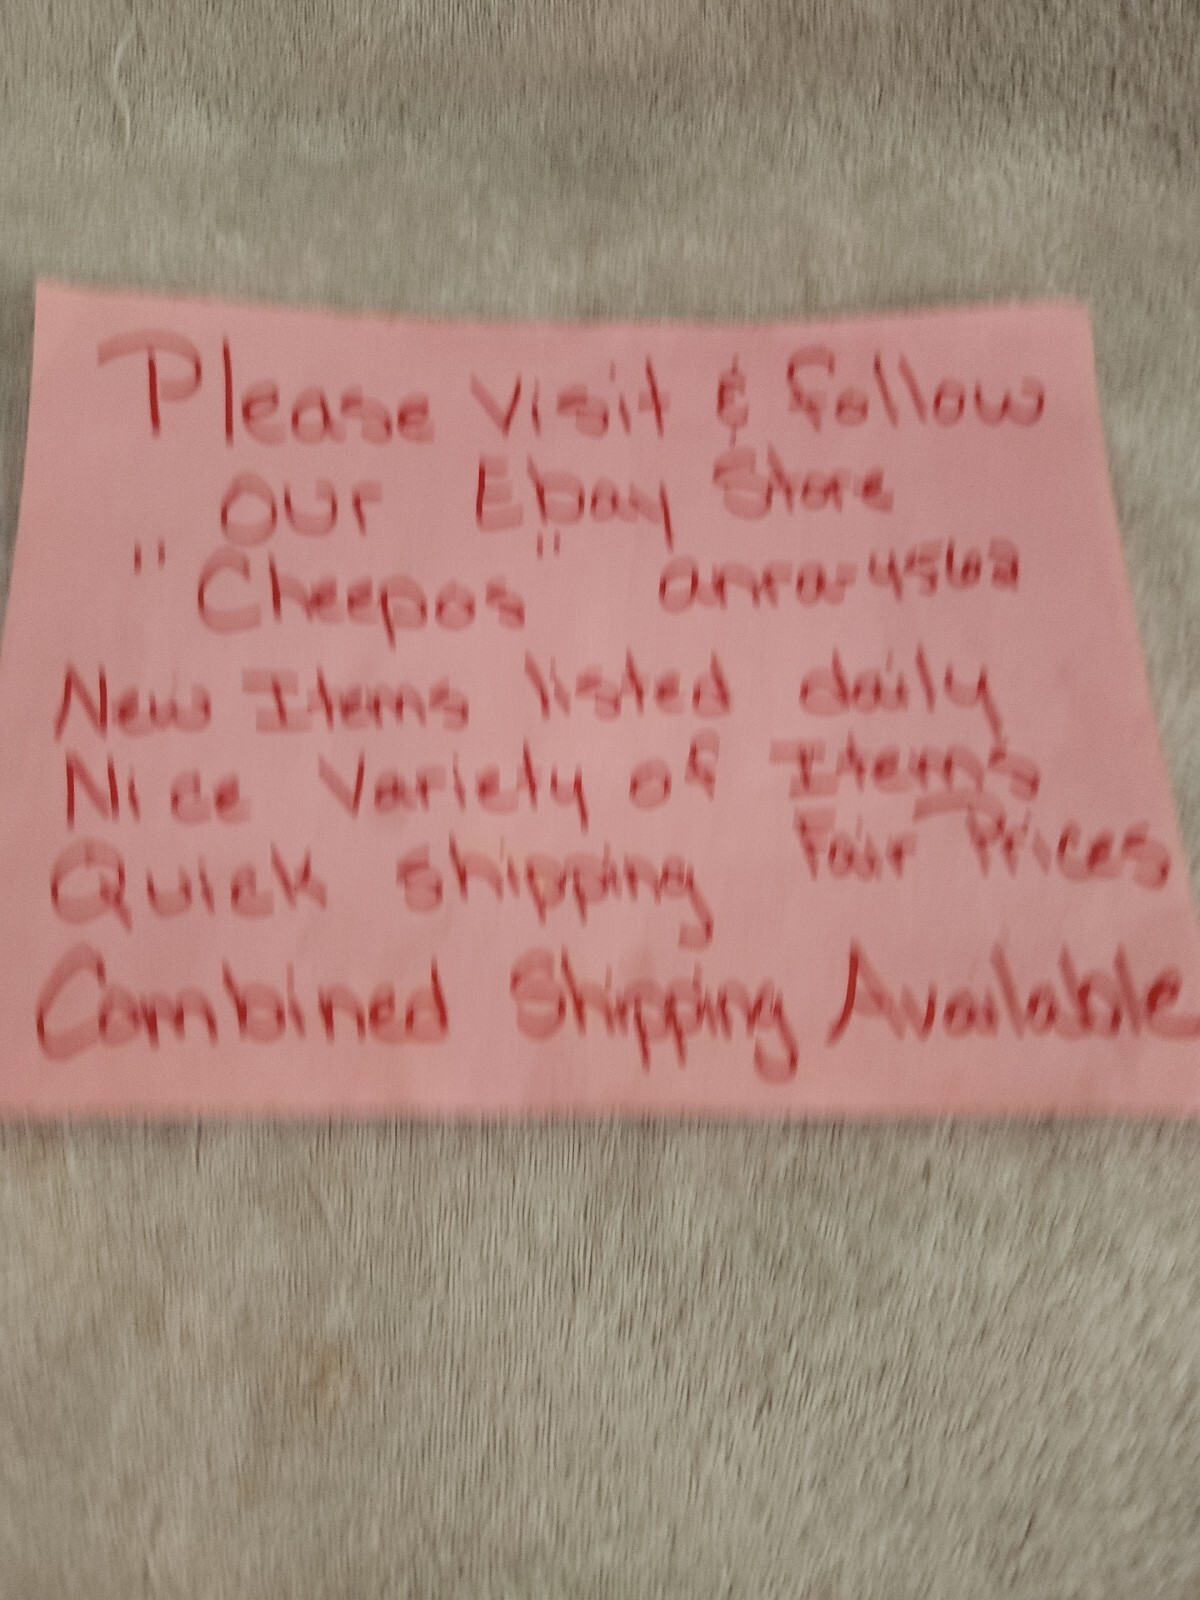 Please Visit & follow
our Ebay Store
"Cheepos"
New Items listed daily
Nice Variety of Items
Quick shipping Fair Prices
Combined Shipping Available